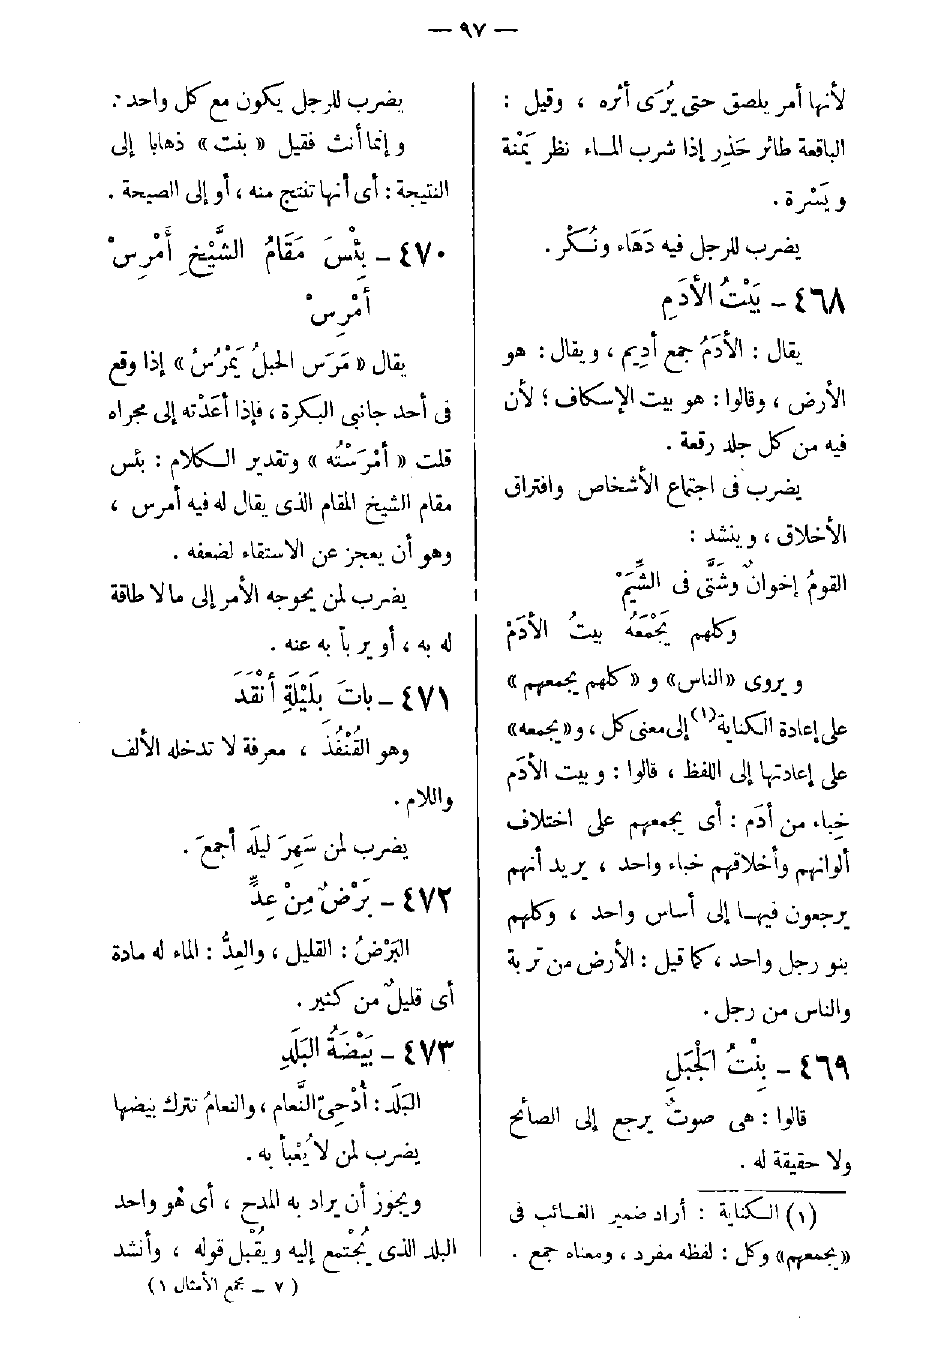 — ٩٧ —
لأنها أمر يلصق حتى يُرَى أثره ، وقيل :
الباقعة طائر حَذِر إذا شرب المـاء نظر يَمْنة
ويَسْرة .
يضرب للرجل فيه دَهَاء ونُكْر .
٤٦٨ – بَيْتُ الأَدَمِ
يقال : الأَدَمُ جمع أديم ، ويقال : هو
الأرض ، وقالوا : هو بيت الإسكاف ؛ لأن
فيه من كل جلد رقعة .
يضرب فى اجتماع الأشخاص وافتراق
الأخلاق ، وينشد :
القومُ إخوانٌ وشَتَّى فى الشِّيَمْ
وكلهم يَجْمَعُه بيتُ الأَدَمْ
ويروى «الناس» و «كلهم يجمعهم»
على إعادة الكناية(١) إلى معنى كل ، و«يجمعه»
على إعادتها إلى اللفظ ، قالوا : وبيت الأَدَم
خِباء من أدَم : أى يجمعهم على اختلاف
ألوانهم وأخلاقهم خباء واحد ، يريد أنهم
يرجعون فيهـا إلى أساس واحد ، وكلهم
بنو رجل واحد ، كما قيل : الأرض من تربة
والناس من رجل .
٤٦٩ – بِنْتُ الجَبَلِ
قالوا : هى صوتٌ يرجع إلى الصائح
ولا حقيقة له .
(١) الكناية : أراد ضمير الغـائب فى
«يجمعهم» وكل : لفظه مفرد ، ومعناه جمع .
يضرب للرجل يكون مع كل واحد .
وإنما أنث فقيل « بنت » ذهابا إلى
النتيجة : أى أنها تنتج منه ، أو إلى الصيحة .
٤٧٠ – بِئْسَ مَقَامُ الشَّيْخِ أَمْرِسْ
أَمْرِسْ
يقال « مَرَس الحبلُ يَمْرُسُ » إذا وقع
فى أحد جانبى البكرة ، فإذا أعَدْته إلى مجراه
قلت « أمْرَسْتُه » وتقدير الكلام : بئس
مقام الشيخ المقام الذى يقال له فيه أمرس ،
وهو أن يعجز عن الاستقاء لضعفه .
يضرب لمن يحوجه الأمر إلى ما لا طاقة
له به ، أو يربأ به عنه .
٤٧١ – باتَ بِلَيْلَةِ أَنْقَدَ
وهو القُنْفُذَ ، معرفة لا تدخله الألف
واللام .
يضرب لمن سَهِرَ ليلَه أجمعَ .
٤٧٢ – بَرْضٌ مِنْ عِدٍّ
البَرْضُ : القليل ، والعِدُّ : الماء له مادة
أى قليلٌ من كثير .
٤٧٣ – بَيْضَةُ البَلَدِ
البَلَد : أُدْحِىّ النَّعام ، والنعامُ تترك بيضها
يضرب لمن لا يُعْبأ به .
ويجوز أن يراد به المدح ، أى هُو واحد
البلد الذى يُجْتمع إليه ويُقْبل قوله ، وأنشد
( ٧ – مجمع الأمثال ١ )